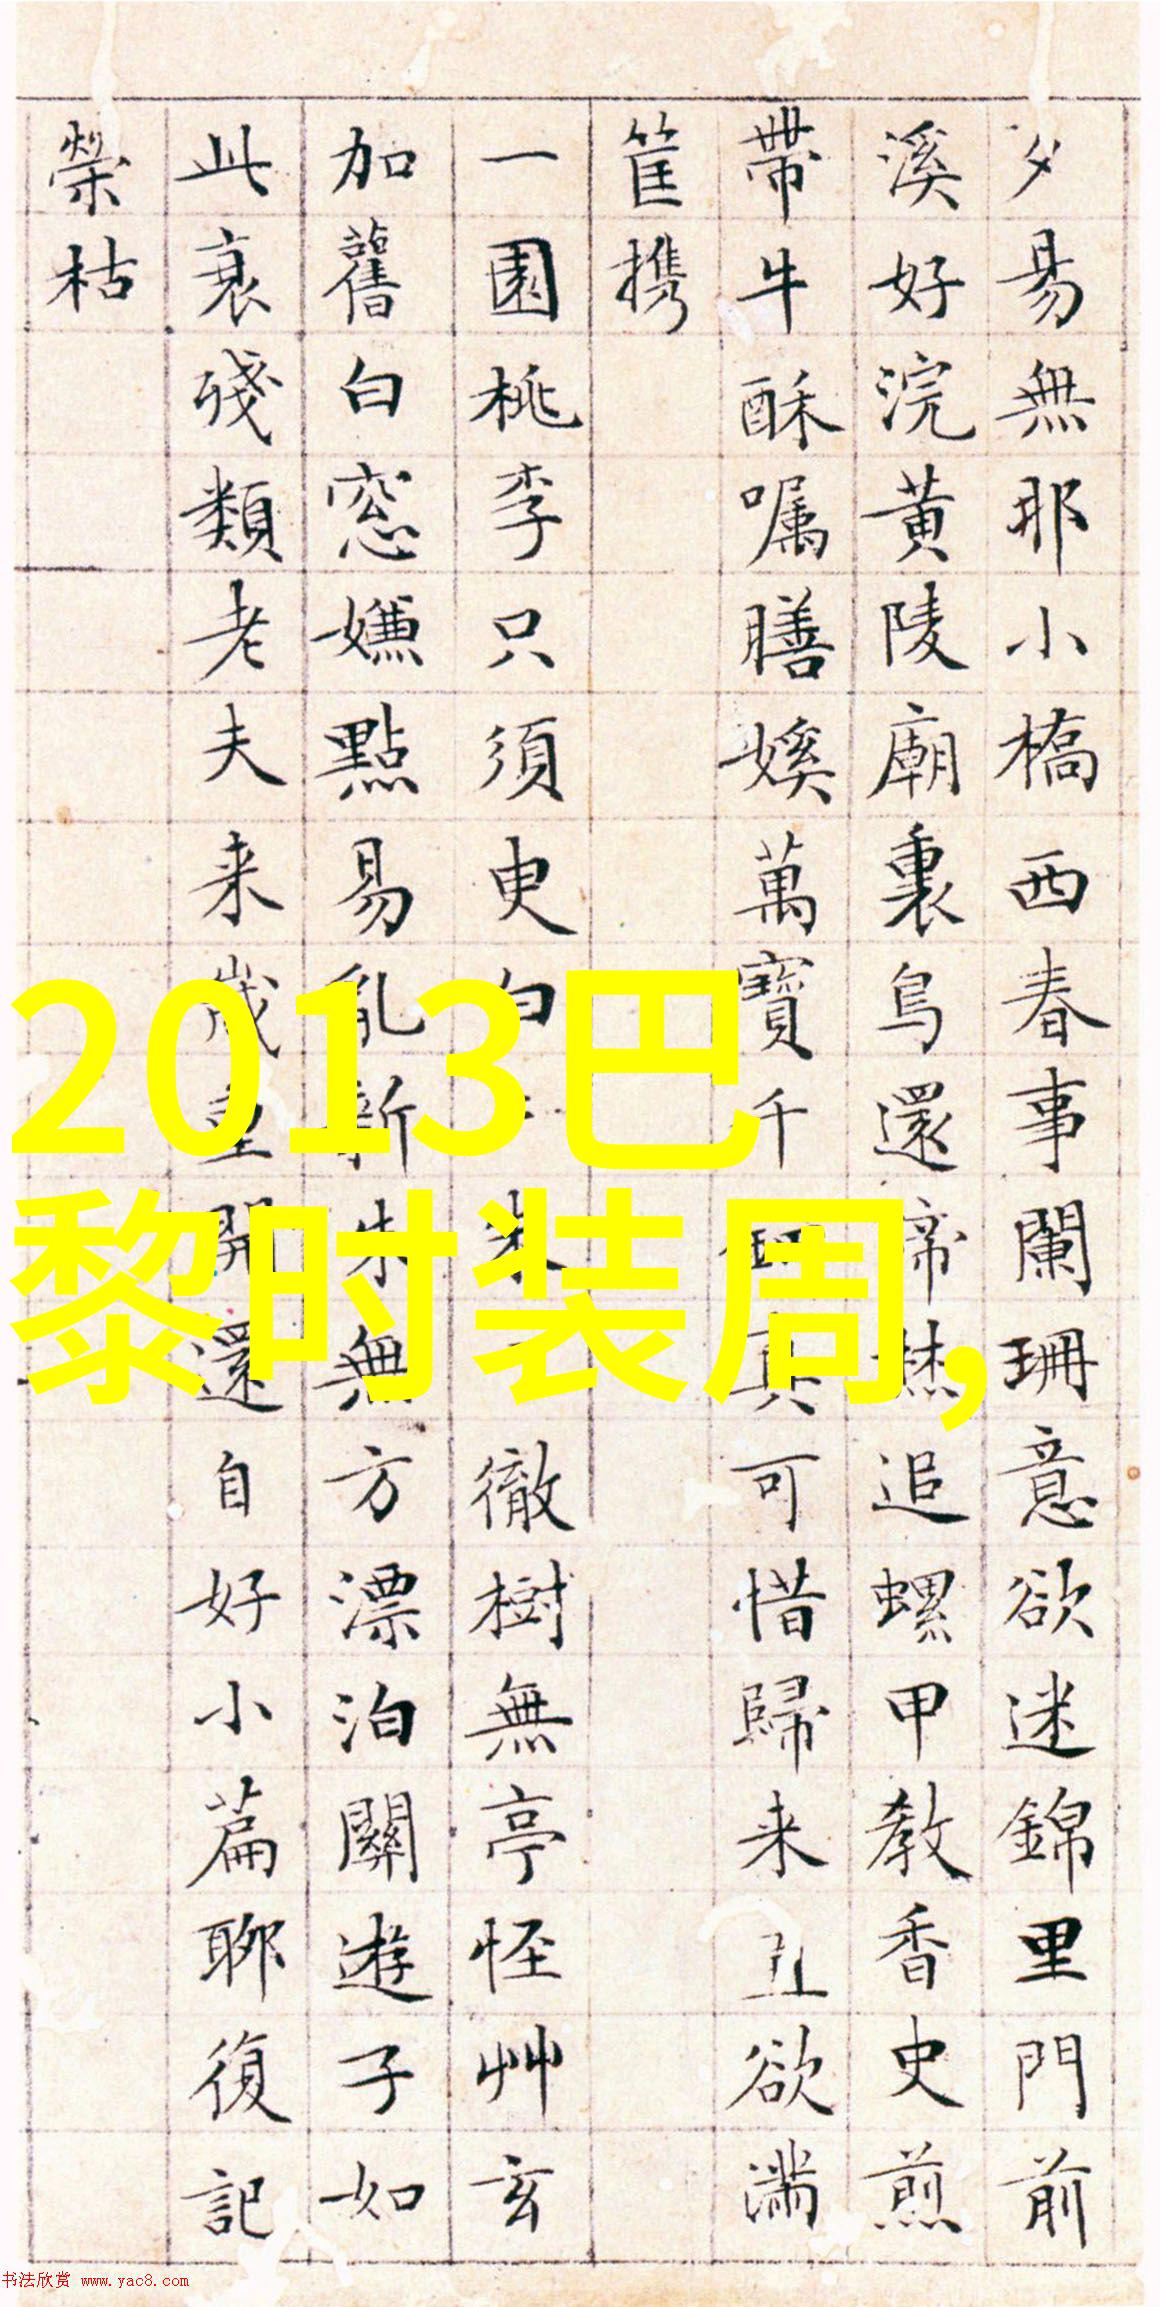 夕易無那小橋西春事闌珊意欲迷錦里門前
溪好浣黄陵廟裏鳥還啼追螺甲教香史煎
帶牛酥嘱膳㜎萬寶千真可惜歸来丑欲滿
筐携
一園桃李只須臾白朱徹樹無亭怪艸玄
加舊白窓嫌點易亂新朱無方漂泊關遊子如
此衰殘類老夫来歲重開還自好小篇聊復記
榮枯
2013巴
黎时装周,
书法欣赏 www.yac8.com